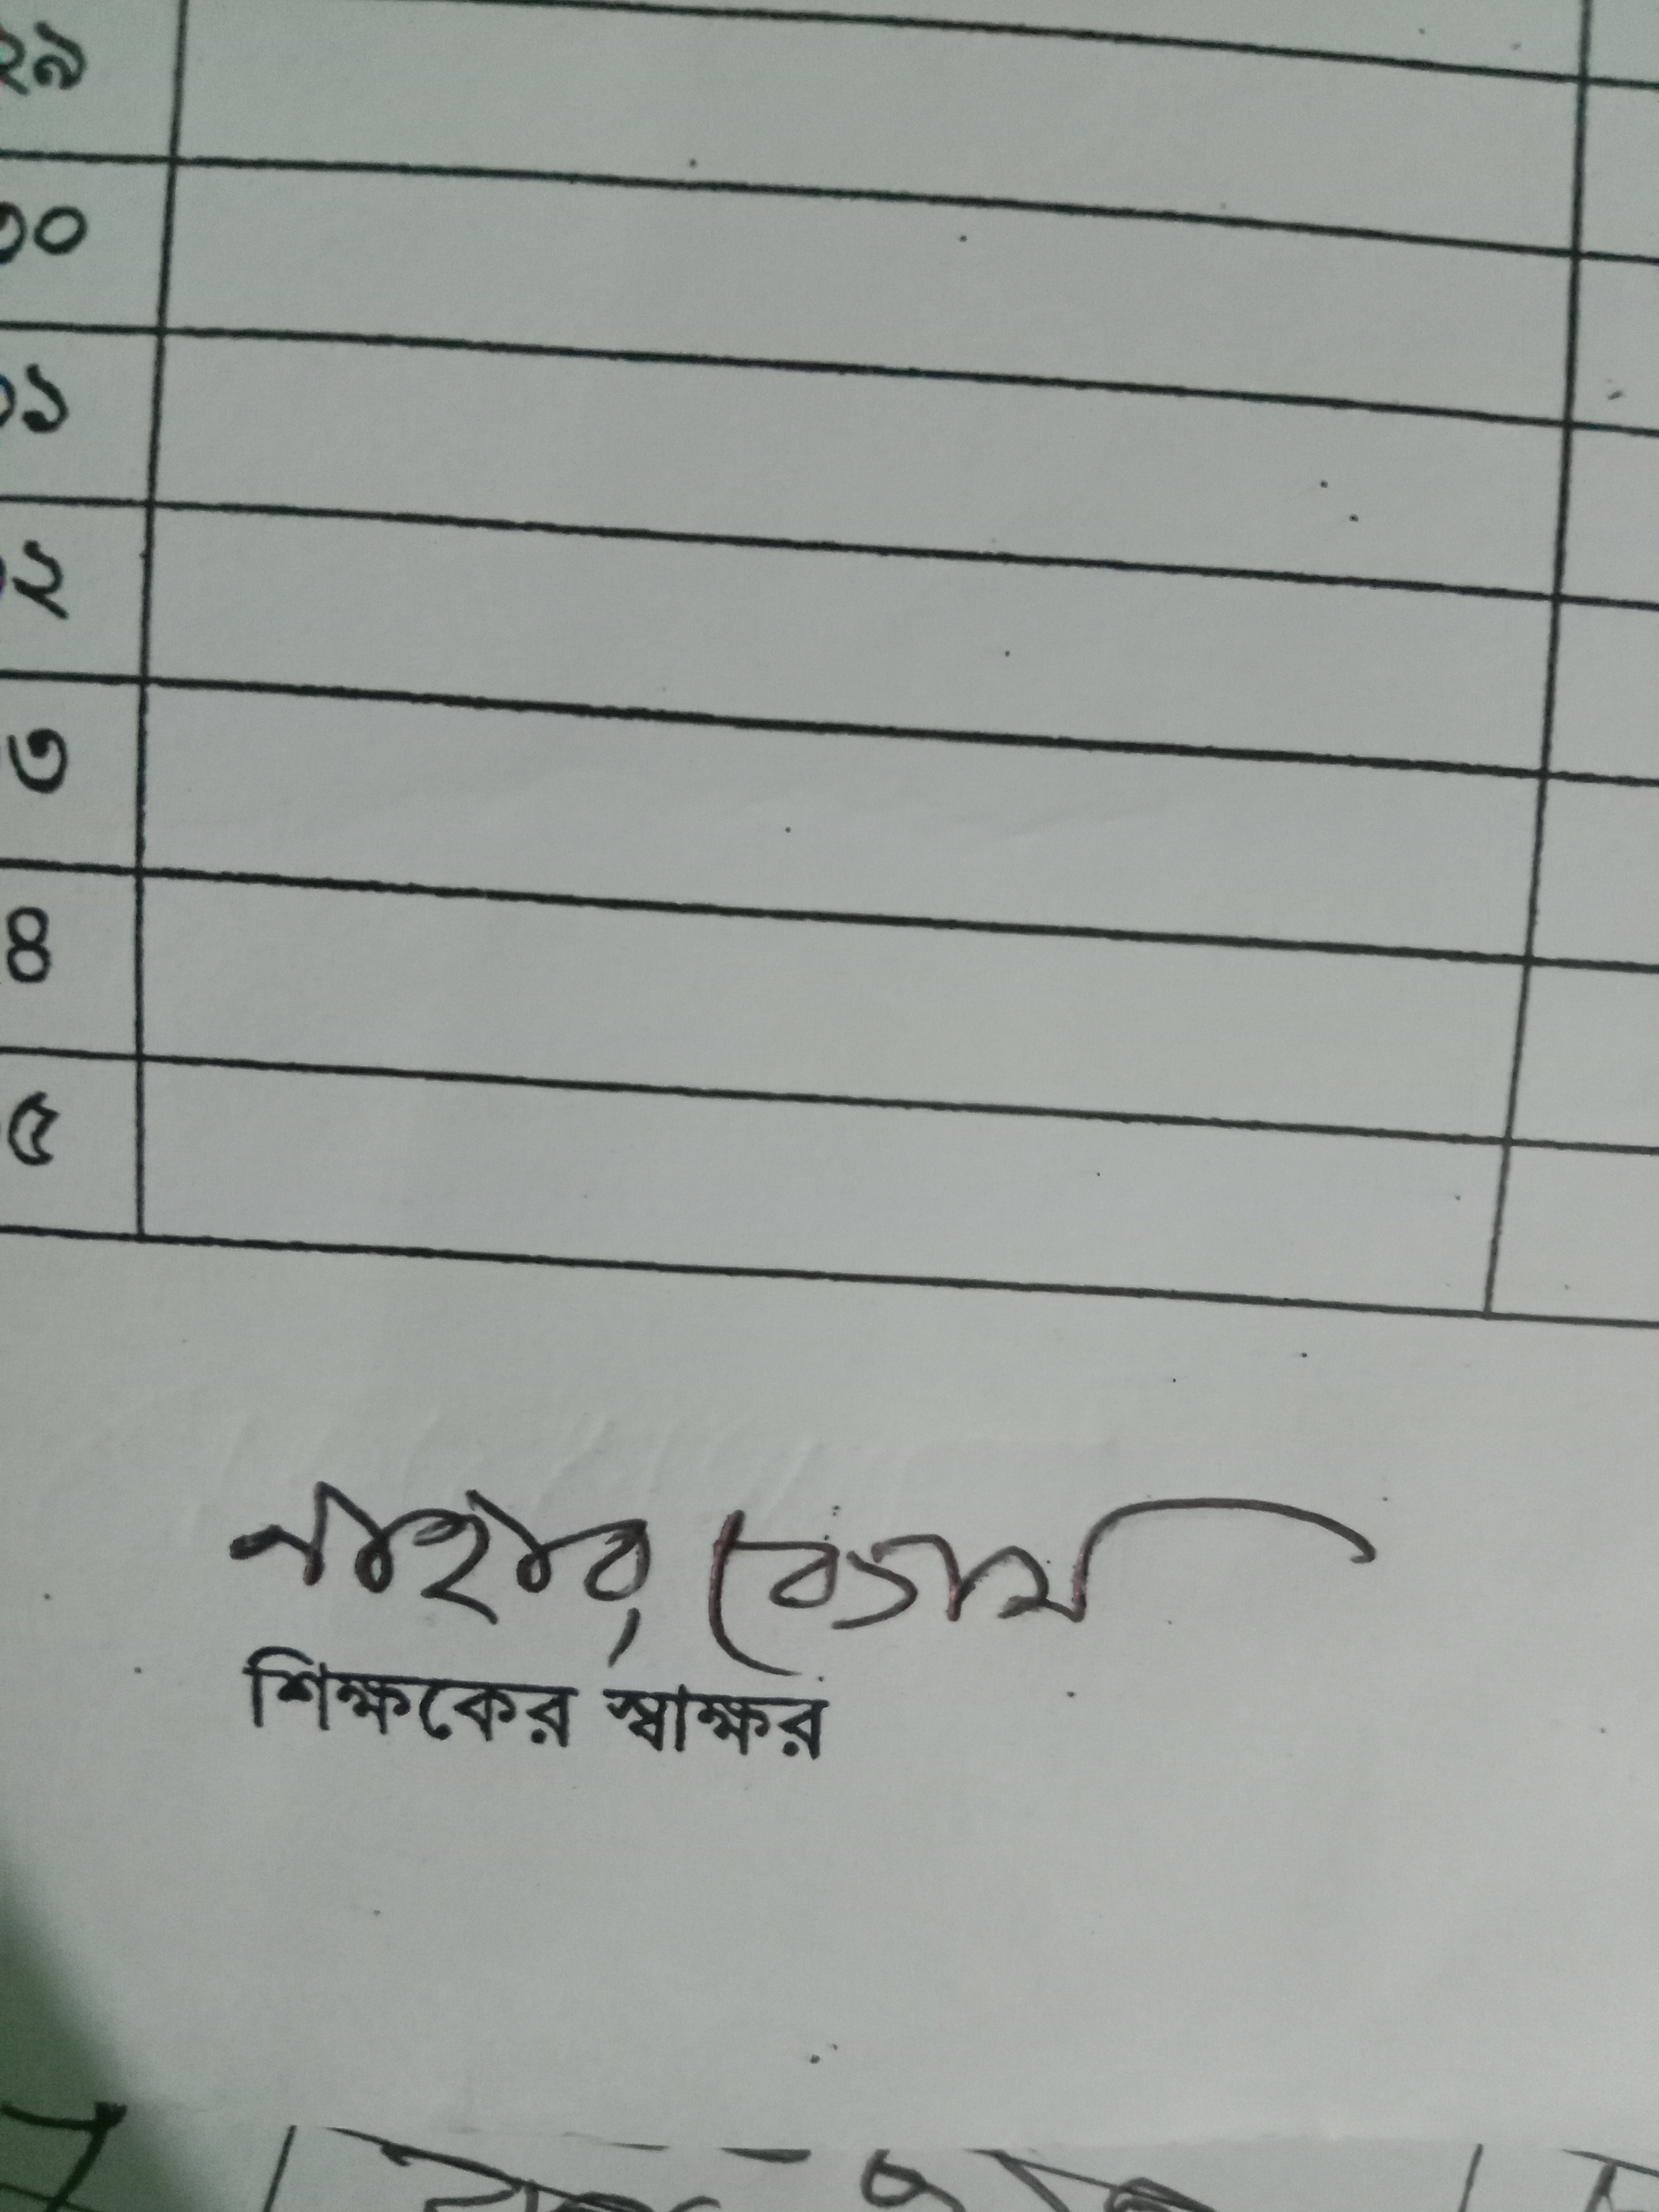 ২৯
৩০
৩১
৩২
৩
৪
৫
নাহার বেগম
শিক্ষকের স্বাক্ষর